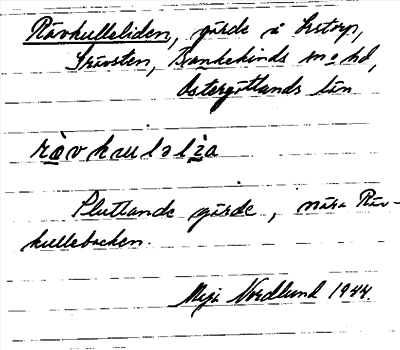 Rävkulleliden, gärde å Irstorp,
Grävsten, Bankekinds sn o hd,
Östergötlands län
rävkulləlia
Sluttande gärde, nära Räv-
kullebacken.
Maja Nordlund 1944.